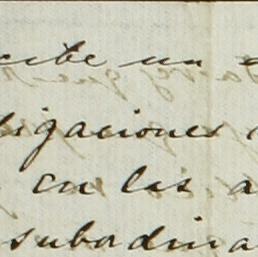 cibe un
igaciones
en las a
subordina